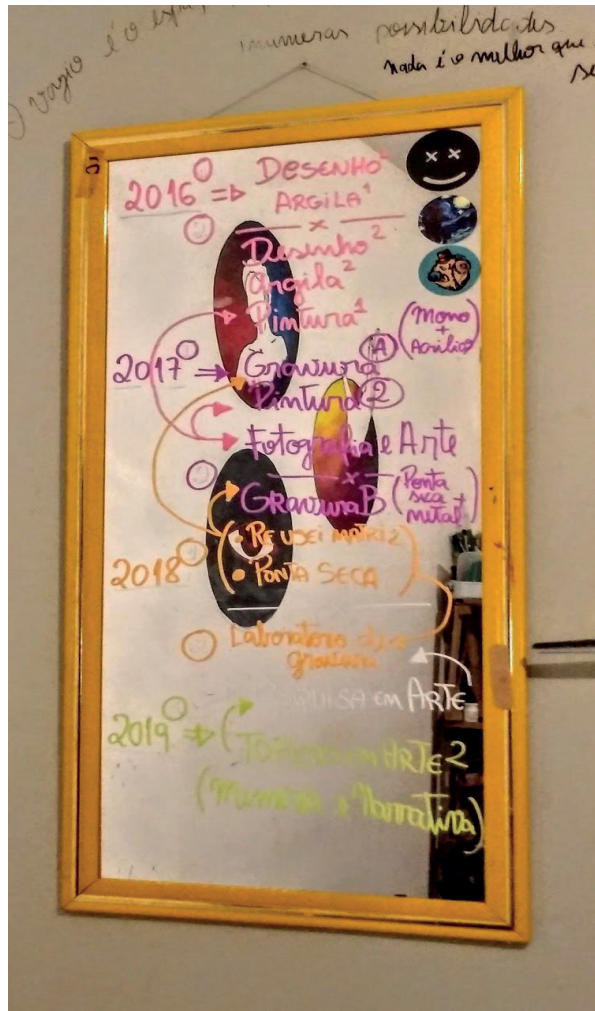 O vazio é o
inumeras possibilidades
nada é o melhor que
2016 ① ⇒ DESENHO¹
ARGILA¹
② x
Desenho²
Argila²
Pintura¹
2017 ① ⇒ Gravura Ⓐ (Mono + Acrílico)
Pintura ②
Fotografia e Arte
② x
Gravura B (Ponta seca + metal)
2018 ① (• REUSEI MATRIZ
• PONTA SECA)
② Laboratorio de
gravura
EM ARTE
2019 ① ⇒ (TOPICOS EM ARTE 2
(Memoria e Narrativa)